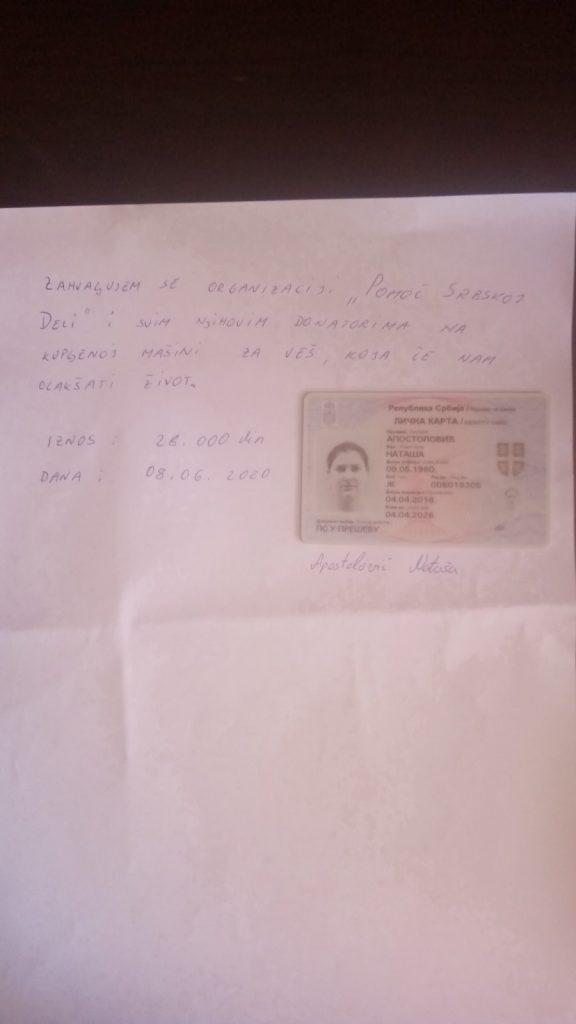 ZAHVALJUJEM SE ORGANIZACIJI „POMOĆ SRBSKOJ
DECI" I SVIM NJIHOVIM DONATORIMA NA
KUPLJENOJ MAŠINI ZA VEŠ, KOJA ĆE NAM
OLAKŠATI ŽIVOT.
IZNOS : 28.000 din
DANA : 08.06.2020
Република Србија
ЛИЧНА КАРТА /
АПОСТОЛОВИЋ
НАТАША
09.05.1980.
Ж 008019305
04.04.2016.
04.04.2026.
ПС У ПРЕШЕВУ
Apostolović Nataša